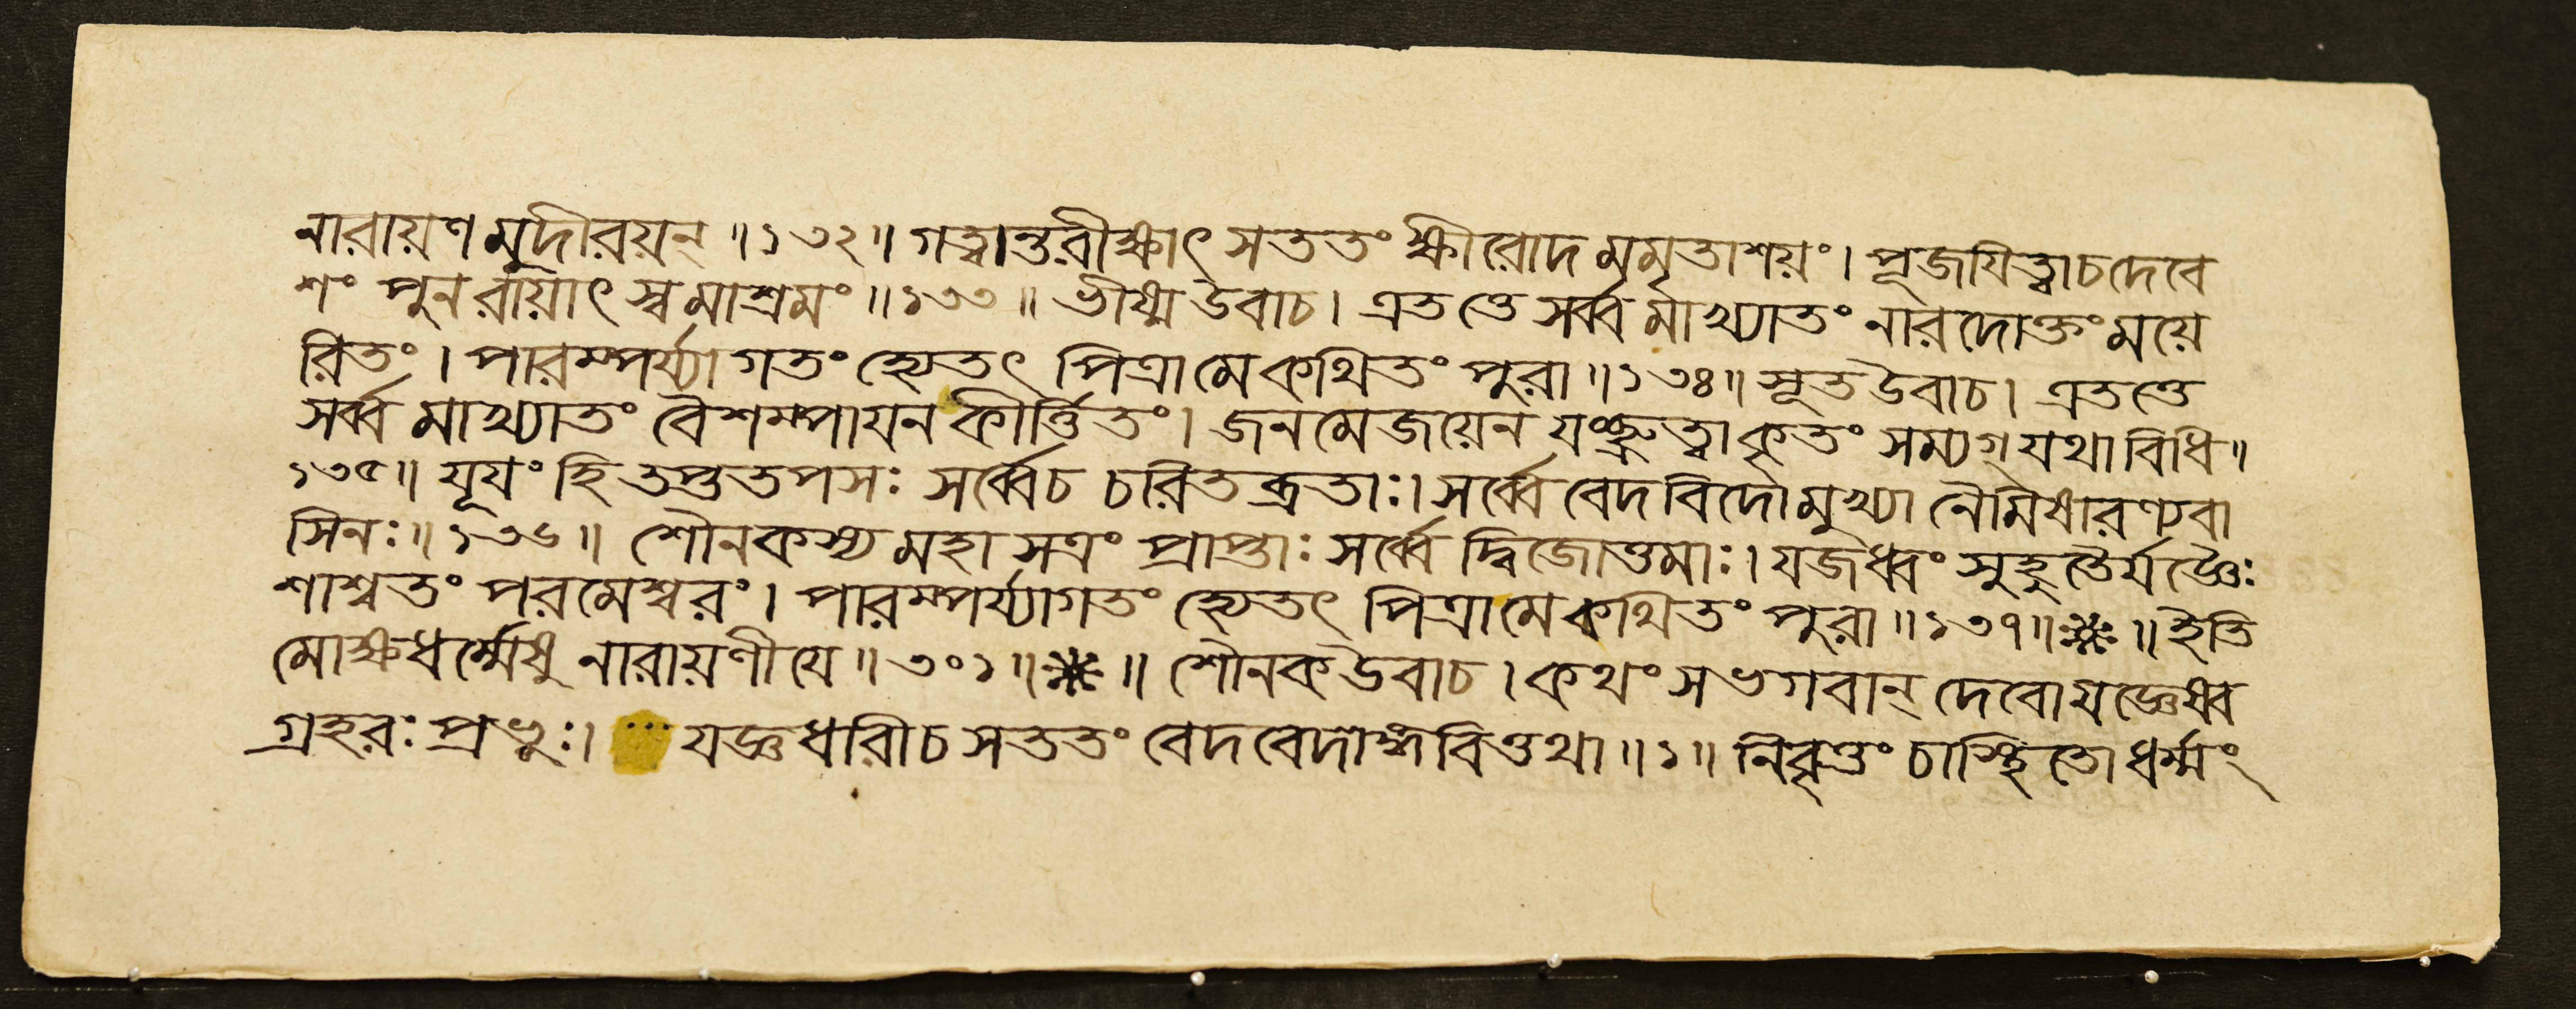 নারায়ণমুদীরয়ন্ ॥ ১৩২ ॥ গত্বান্তরীক্ষাৎ সততং ক্ষীরোদমমৃতাশয়ং । পূজযিত্বাচদেবে
শং পুনরায়াৎ স্বমাশ্রমং ॥ ১৩৩ ॥ ভীষ্ম উবাচ । এতত্তে সর্ব্বমাখ্যাতং নারদোক্তং ময়ে
রিতং । পারম্পর্য্যাগতং হ্যেতৎ পিত্রামেকথিতং পুরা ॥ ১৩৪ ॥ সূত উবাচ । এতত্তে
সর্ব্বমাখ্যাতং বৈশম্পায়নকীর্ত্তিতং । জনমেজয়েন যংচ্ছ্রুত্বাকৃতং সম্যগ্ যথাবিধি ॥
১৩৫ ॥ যূযং হি তপ্ততপসঃ সর্ব্বেচ চরিতব্রতাঃ । সর্ব্বে বেদবিদোমুখ্যা নৈমিষারণ্যবা
সিনঃ ॥ ১৩৬ ॥ শৌনকস্য মহাসত্রং প্রাপ্তাঃ সর্ব্বে দ্বিজোত্তমাঃ । যজধ্বং সুহুতৈর্যজ্ঞৈঃ
শাশ্বতং পরমেশ্বরং । পারম্পর্য্যাগতং হ্যেতৎ পিত্রামেকথিতং পুরা ॥ ১৩৭ ॥ ※ ॥ ইতি
মোক্ষধর্ম্মেষু নারায়ণীযে ॥ ৩০১ ॥ ※ ॥ শৌনক উবাচ । কথং সভগবান্ দেবোযজ্ঞেষ্ব
গ্রহরঃ প্রভুঃ । যজ্ঞধারীচ সততং বেদবেদাঙ্গবিত্তথা ॥ ১ ॥ নিবৃত্তং চাস্থিতোধর্ম্মং